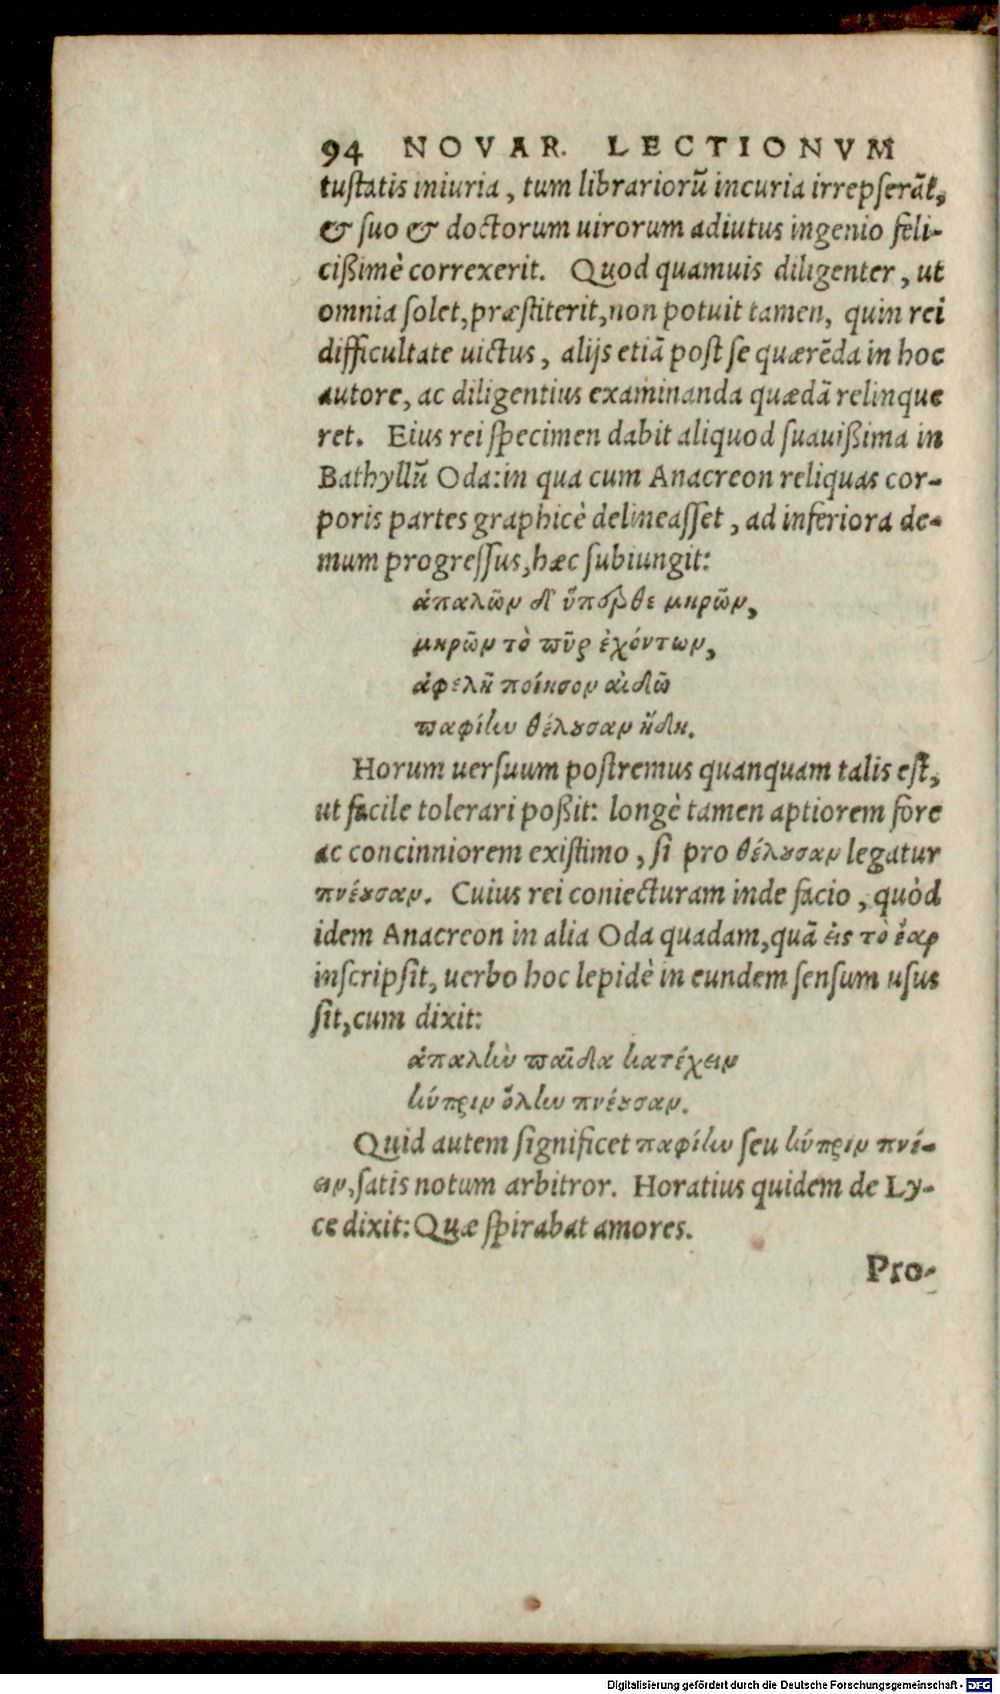 94 NOVAR. LECTIONVM
tustatis iniuria, tum librariorũ incuria irrepserãt,
& suo & doctorum uirorum adiutus ingenio feli-
cißimè correxerit. Quod quamuis diligenter, ut
omnia solet, præstiterit, non potuit tamen, quin rei
difficultate uictus, alijs etiã post se quærẽda in hoc
autore, ac diligentius examinanda quædã relinque
ret. Eius rei specimen dabit aliquod suauißima in
Bathyllũ Oda: in qua cum Anacreon reliquas cor-
poris partes graphicè delineasset, ad inferiora de-
mum progressus, hæc subiungit:
ἁπαλῶν δ' ὕπερθε μηρῶν,
μηρῶν τὸ πῦρ ἐχόντων,
ἀφελῆ ποίησον αἰδῶ
παφίην θέλουσαν ἤδη.
Horum uersuum postremus quanquam talis est,
ut facile tolerari poßit: longè tamen aptiorem fore
ac concinniorem existimo, si pro θέλουσαν legatur
πνέουσαν. Cuius rei coniecturam inde facio, quòd
idem Anacreon in alia Oda quadam, quã εἰς τὸ ἔαρ
inscripsit, uerbo hoc lepidè in eundem sensum usus
sit, cum dixit:
ἁπαλὴν παῖδα κατέχειν
κύπριν ὅλην πνέουσαν.
Quid autem significet παφίην seu κύπριν πνέ-
ειν, satis notum arbitror. Horatius quidem de Ly-
ce dixit: Quæ spirabat amores.
Pro-
Digitalisierung gefördert durch die Deutsche Forschungsgemeinschaft - DFG